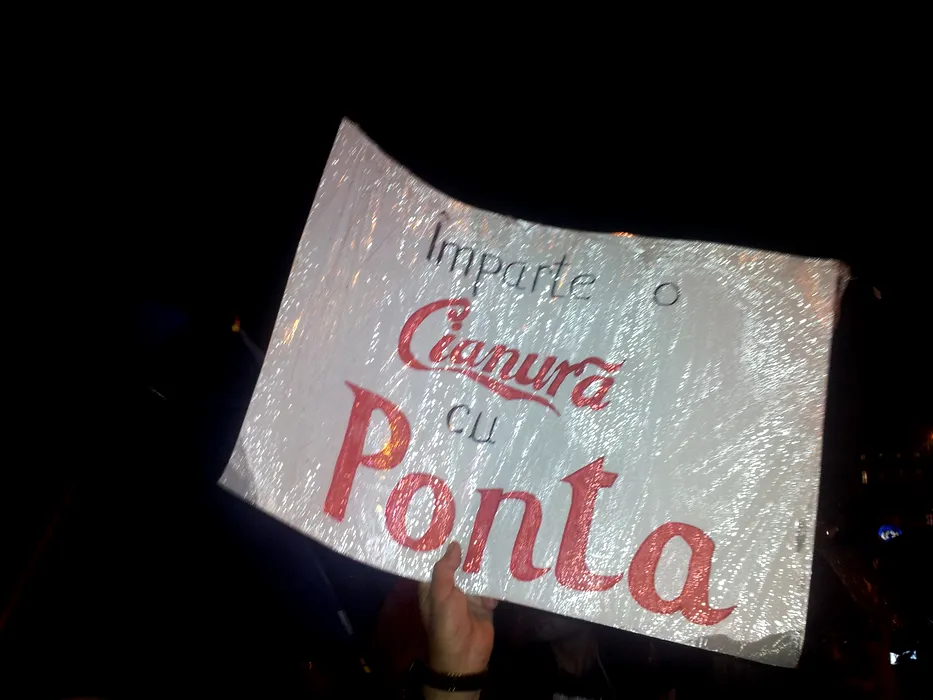 Împarte o
Cianura
cu
Ponta